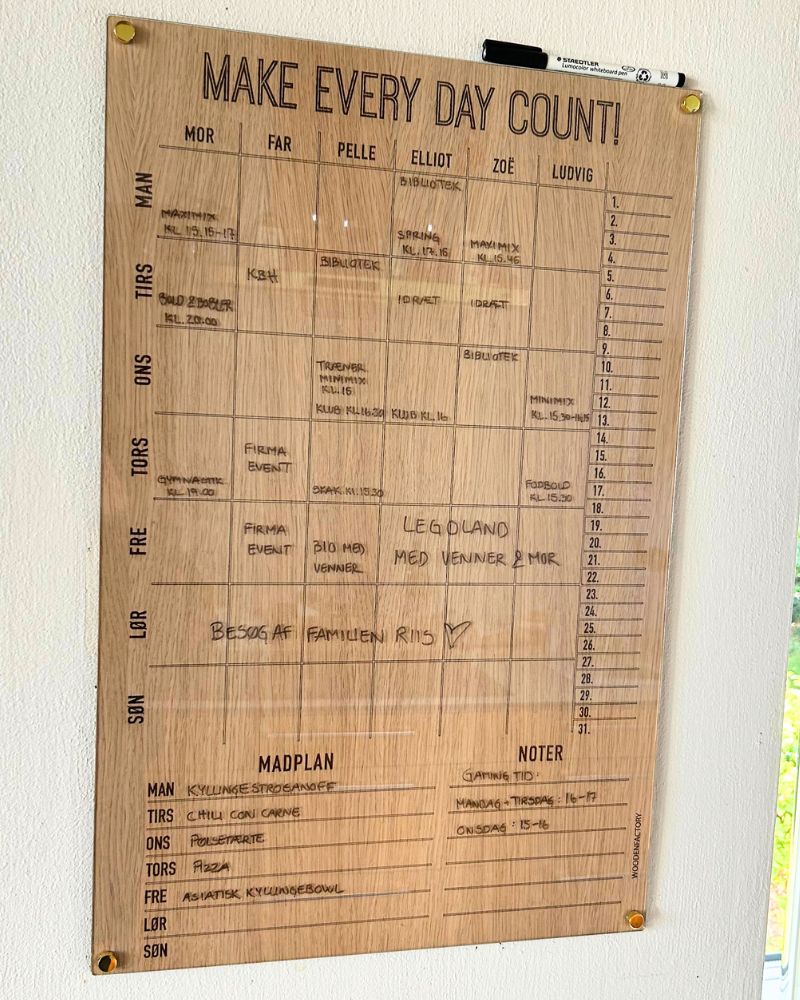 STAEDTLER
Lumocolor whiteboard pen
MAKE EVERY DAY COUNT!
MOR FAR PELLE ELLIOT ZOË LUDVIG
MAN
BIBLIOTEK
MAXIMIX
KL 15.15-17
SPRING
KL. 17.15
MAXIMIX
KL. 15.45
TIRS
KBH
BIBLIOTEK
BOLD & BOBLER
KL. 20.00
IDRÆT
IDRÆT
ONS
BIBLIOTEK
TRÆNER
MINIMIX
KL. 15
KLUB KL. 16.30
KLUB KL. 16
MINIMIX
KL. 15.30-16.15
TORS
FIRMA
EVENT
GYMNASTIK
KL. 19.00
SKAK. KL. 15.30
FODBOLD
KL. 15.30
FRE
FIRMA
EVENT
BIO MED
VENNER
LEGOLAND
MED VENNER & MOR
LØR
BESØG AF FAMILIEN RIIS
SØN
1.
2.
3.
4.
5.
6.
7.
8.
9.
10.
11.
12.
13.
14.
15.
16.
17.
18.
19.
20.
21.
22.
23.
24.
25.
26.
27.
28.
29.
30.
31.
MADPLAN
MAN KYLLINGESTROGANOFF
TIRS CHILI CON CARNE
ONS PØLSETÆRTE
TORS PIZZA
FRE ASIATISK KYLLINGEBOWL
LØR
SØN
NOTER
GAMING TID:
MANDAG + TIRSDAG: 16-17
ONSDAG: 15-16
WOODENFACTORY